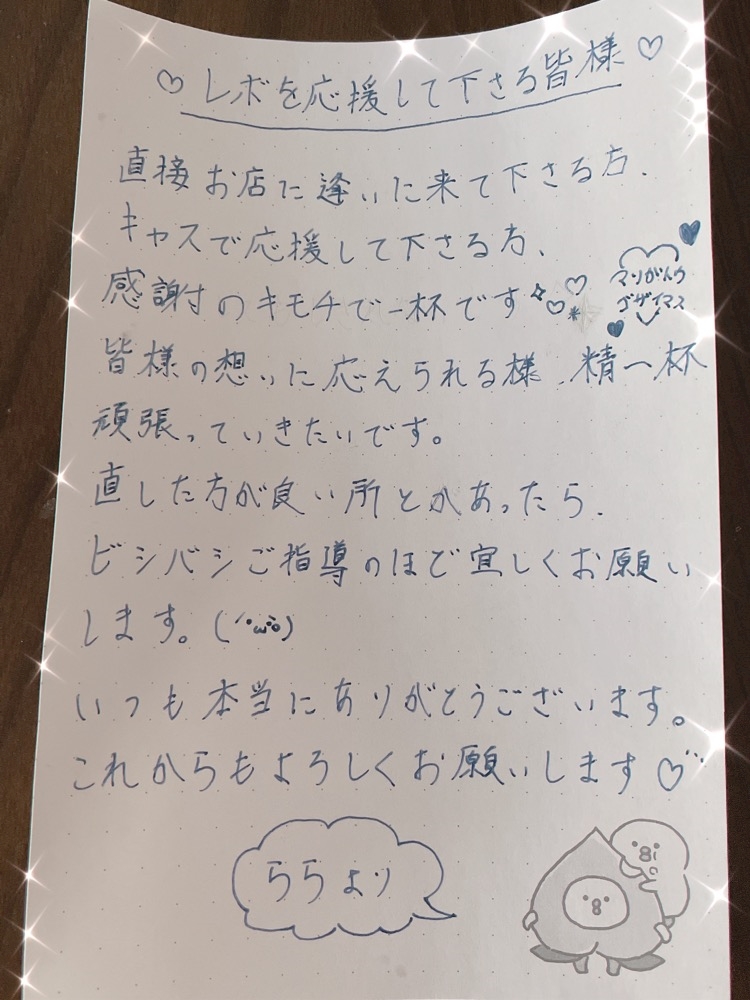 ♡ レボを応援して下さる皆様 ♡
直接お店に逢いに来て下さる方、
キャスで応援して下さる方、
感謝のキモチで一杯です
マリがんう
ゴザイマス
皆様の想いに応えられる様、精一杯
頑張っていきたいです。
直した方が良い所とかあったら、
ビシバシご指導のほど宜しくお願い
します。(´•ω•̀)
いつも本当にありがとうございます。
これからもよろしくお願いします♡
ららより